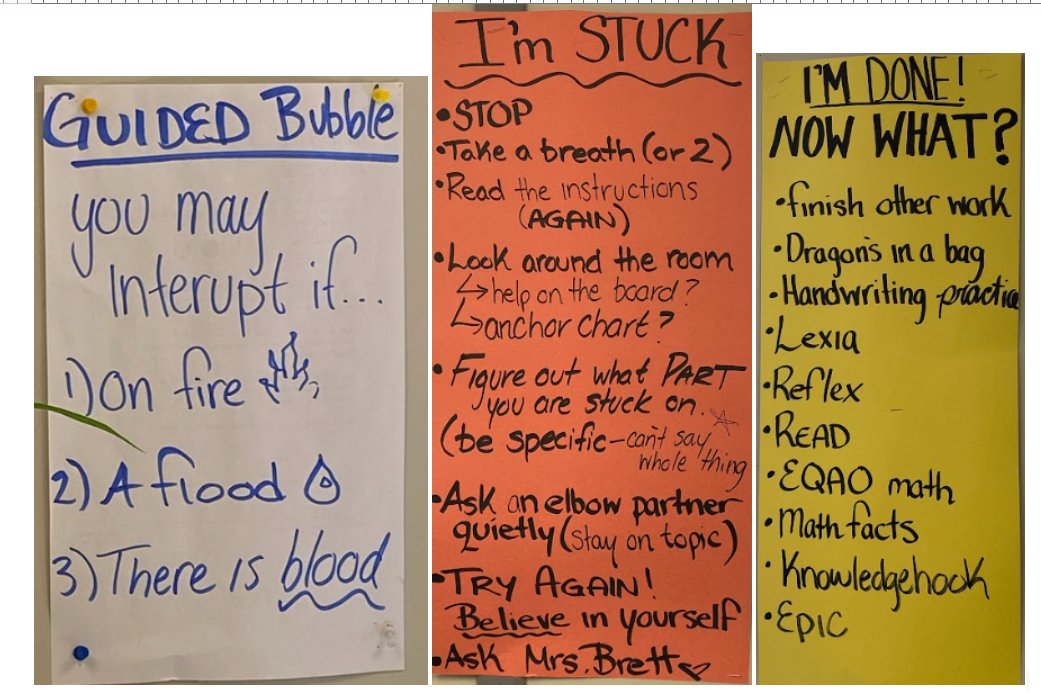 GUIDED Bubble
you may
Interupt if...
1) On fire
2) A flood
3) There is blood
I'm STUCK
• STOP
• Take a breath (or 2)
• Read the instructions
(AGAIN)
• Look around the room
↳ help on the board?
↳ anchor chart?
• Figure out what PART
you are stuck on.
(be specific - can't say
whole thing
• Ask an elbow partner
quietly (stay on topic)
• TRY AGAIN!
Believe in yourself
• Ask Mrs. Brett
I'M DONE!
NOW WHAT?
• finish other work
• Dragons in a bag
• Handwriting practice
• Lexia
• Reflex
• READ
• EQAO math
• Math facts
• Knowledgehook
• EPIC